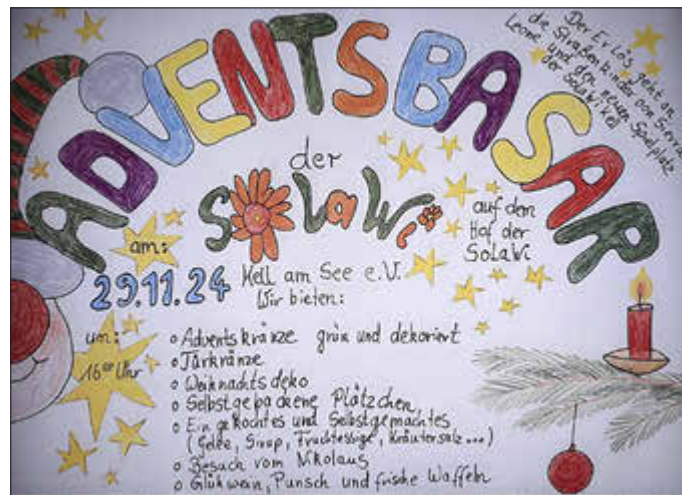 ADVENTSBASAR
Der Erlös geht an
die Straßenkinder von Sierra
Leone und den neuen Spielplatz
der SolaWi Kell
der
SOLaWi
auf dem
Hof der
SolaWi
am:
29.11.24
Kell am See e.V.
Wir bieten:
um:
16⁰⁰ Uhr
o Adventskränze grün und dekoriert
o Türkränze
o Weihnachtsdeko
o Selbstgebackene Plätzchen,
o Eingekochtes und Selbstgemachtes
(Gelee, Sirup, Fruchtessige, Kräutersalz...)
o Besuch vom Nikolaus
o Glühwein, Punsch und frische Waffeln